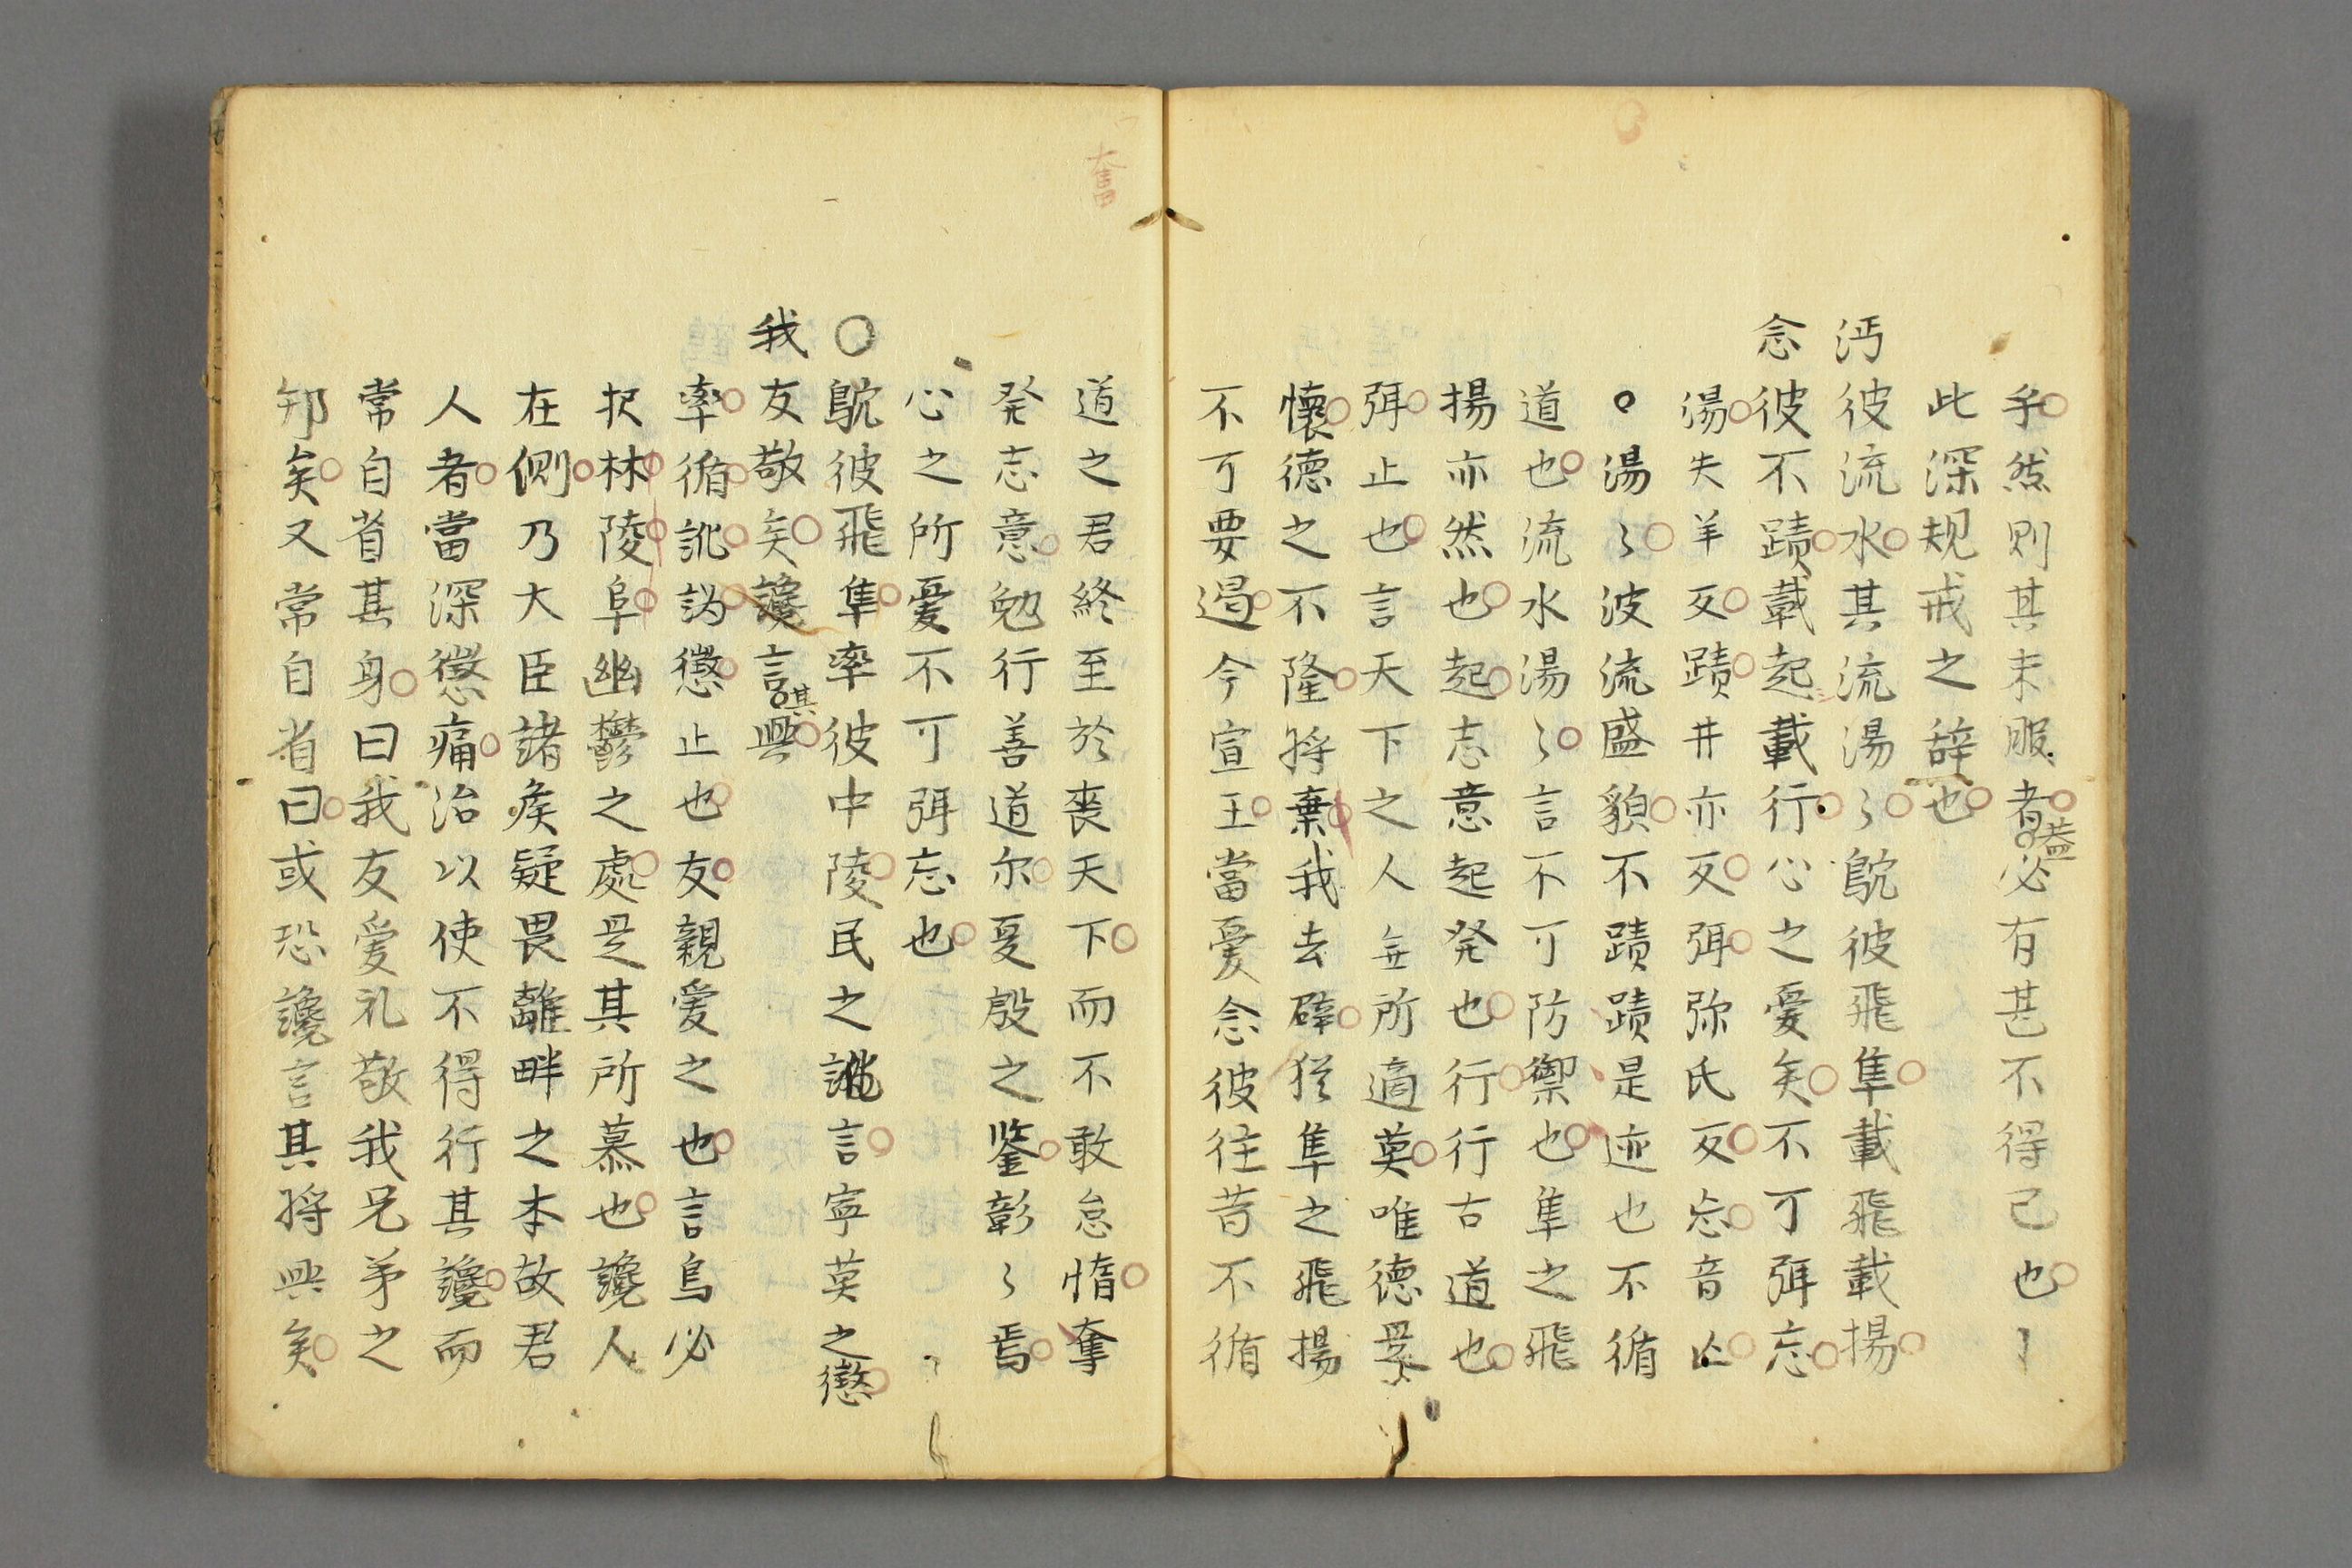 乎然則其未服者盍必有甚不得已也
此深規戒之辞也
沔彼流水其流湯〻鴥彼飛隼載飛載揚
念彼不蹟載起載行心之憂矣不可弭忘
湯失羊反蹟井亦反弭弥氏反忘音亾
湯〻波流盛貌不蹟蹟是迹也不循
道也流水湯〻言不可防禦也隼之飛
揚亦然也起志意起発也行行古道也
弭止也言天下之人無所適莫唯德是
懐德之不隆將棄我去辟猶隼之飛揚
不可要遏今宣王當憂念彼往昔不循
奮
道之君終至於喪天下而不敢怠惰奪
発志意勉行善道尔夏殷之鉴彰〻焉
心之所憂不可弭忘也
〇鴥彼飛隼率彼中陵民之訛言寧莫之懲
我友敬矣讒言其興
率循訛譌懲止也友親愛之也言鳥必
択林陵阜幽鬱之處是其所慕也讒人
在側乃大臣諸侯疑畏離畔之本故君
人者當深懲痛治以使不得行其讒而
常自省其身曰我友爱礼敬我兄弟之
邦矣又常自省曰或恐讒言其將興矣